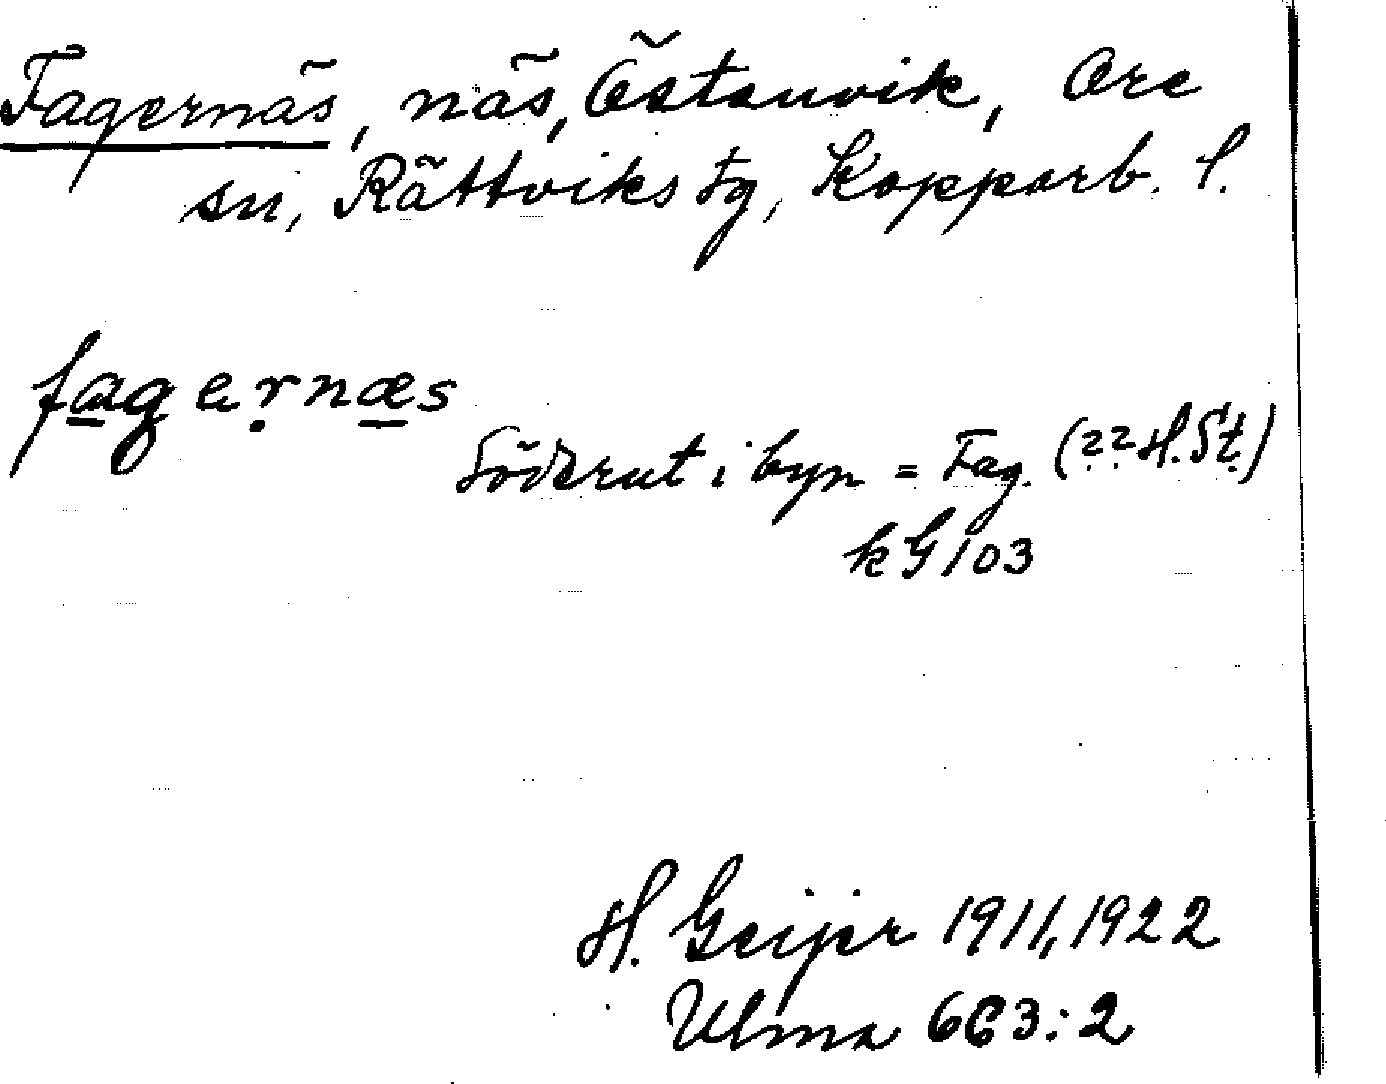 Fagernäs, näs, Östanvik, Ore
sn, Rättviks tg, Kopparb. l.
fagernæs
Söderut i byn = Fag. (?? H. St.)
kG 103
H. Geijer 1911, 1922
Ulma 663:2